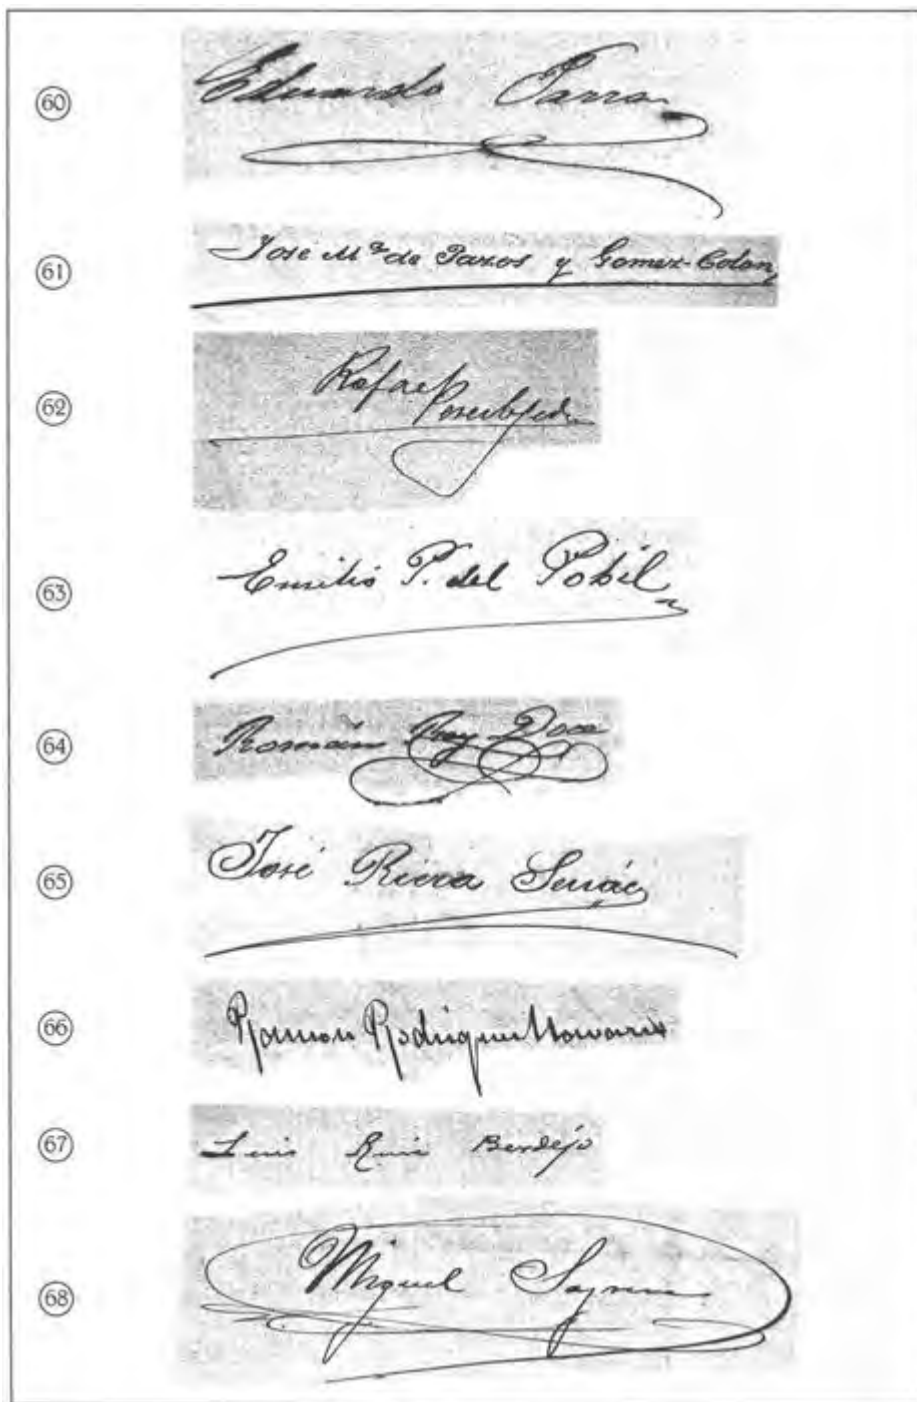 60 Eduardo Parra
61 José Mª de Pazos y Gomez-Colon
62 Rafael
63 Emilio P. del Pobil
64 Román Rey
65 José Riera
66 Ramon Rodriguez Navarro
67 Luis Ruiz Berdejo
68 Miguel